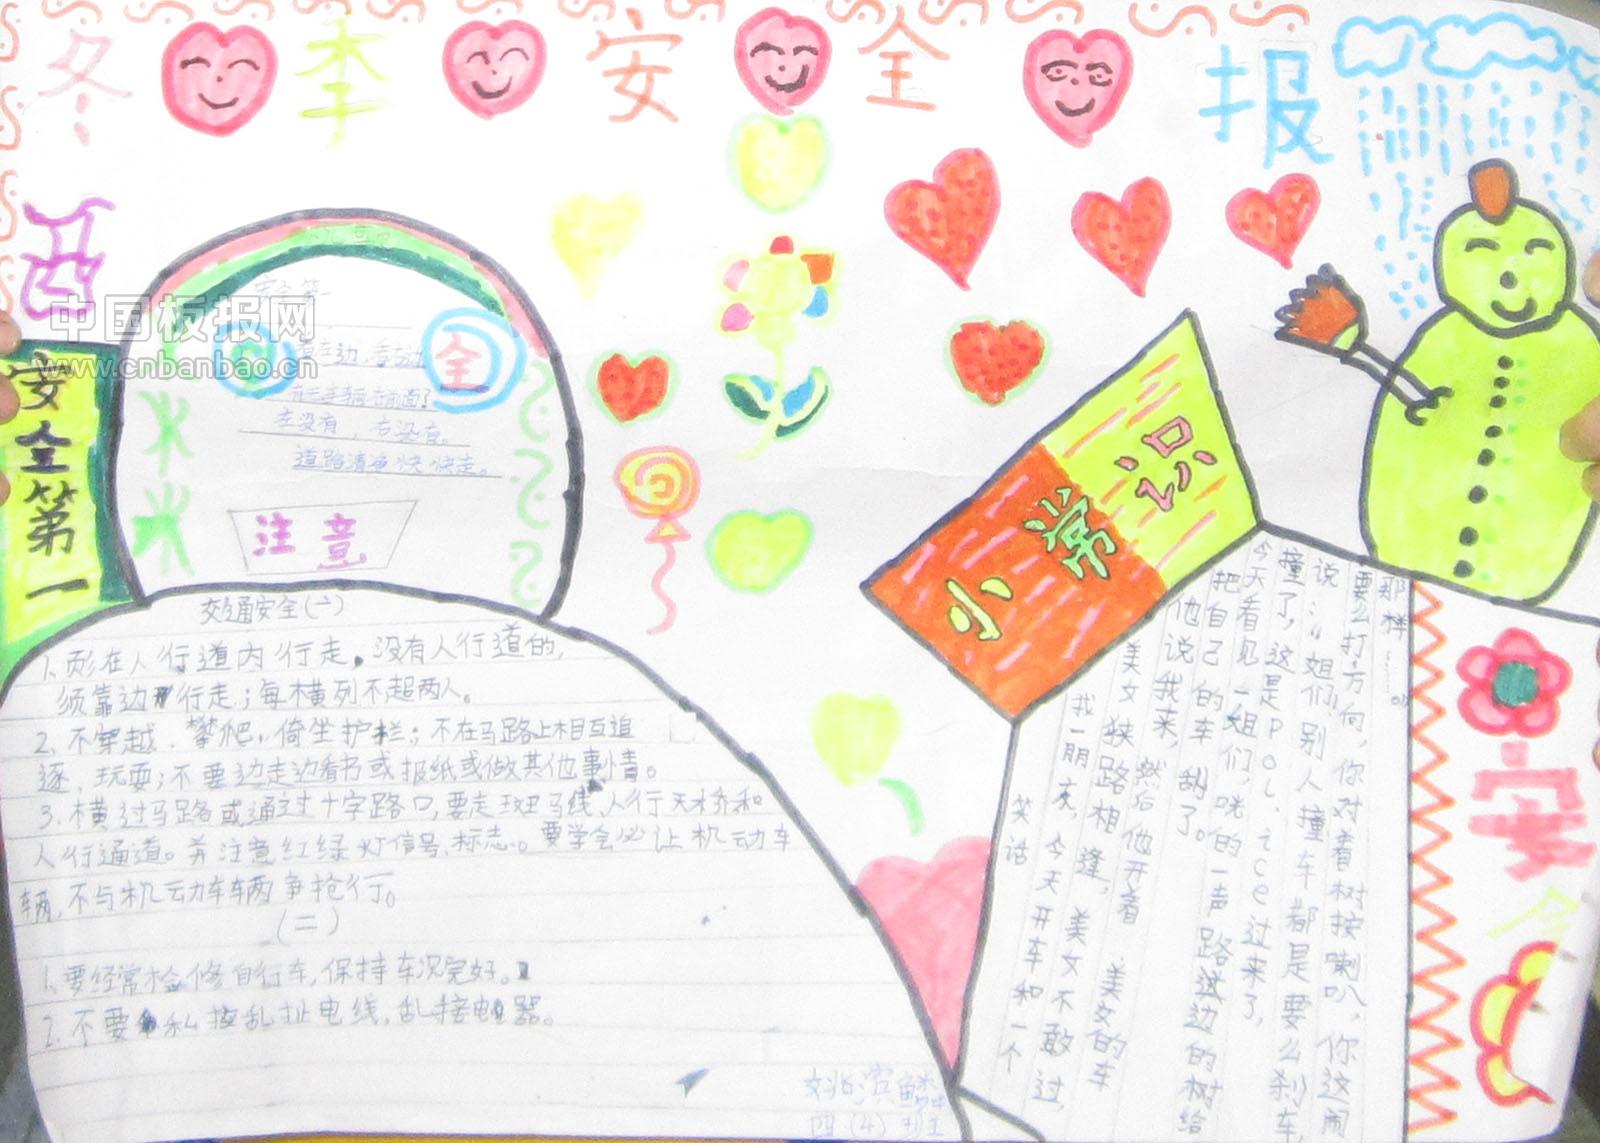 冬季安全报
中国板报网
www.cnbanbao.cn
安全第一
全
左没有，右没有。
注意
交通安全(一)
1、须在人行道内行走。没有人行道的，
须靠边行走；每横列不超两人。
2、不穿越、攀爬、倚坐护栏；不在马路上相互追
逐、玩耍；不要边走边看书或报纸或做其他事情。
3、横过马路或通过十字路口，要走斑马线、人行天桥和
人行通道。并注意红绿灯信号、标志。要学会必让机动车
辆，不与机动车辆争抢行。
(二)
1、要经常检修自行车，保持车况完好。
2、不要私拉乱扯电线，乱接电器。
四(4)班
小常识
笑话
我一朋友，今天开车和一个
美女狭路相逢，美女不敢过，
他说我来，然后他开着美女的车
把自己的车刮了。
今天看见一姐们，咣的一声路边的树给
撞了，这是police过来了，
说：“姐们，别人撞车都是要么刹车，
要么打方向，你对着树按喇叭，你这闹
那样……。”
安
全